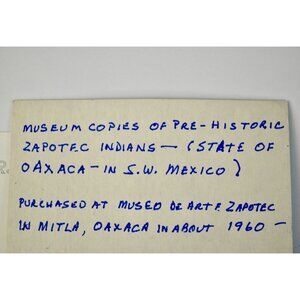 MUSEUM COPIES OF PRE-HISTORIC
ZAPOTEC INDIANS — (STATE OF
OAXACA — IN S.W. MEXICO)
PURCHASED AT MUSEO DE ARTE ZAPOTEC
IN MITLA, OAXACA IN ABOUT 1960 —